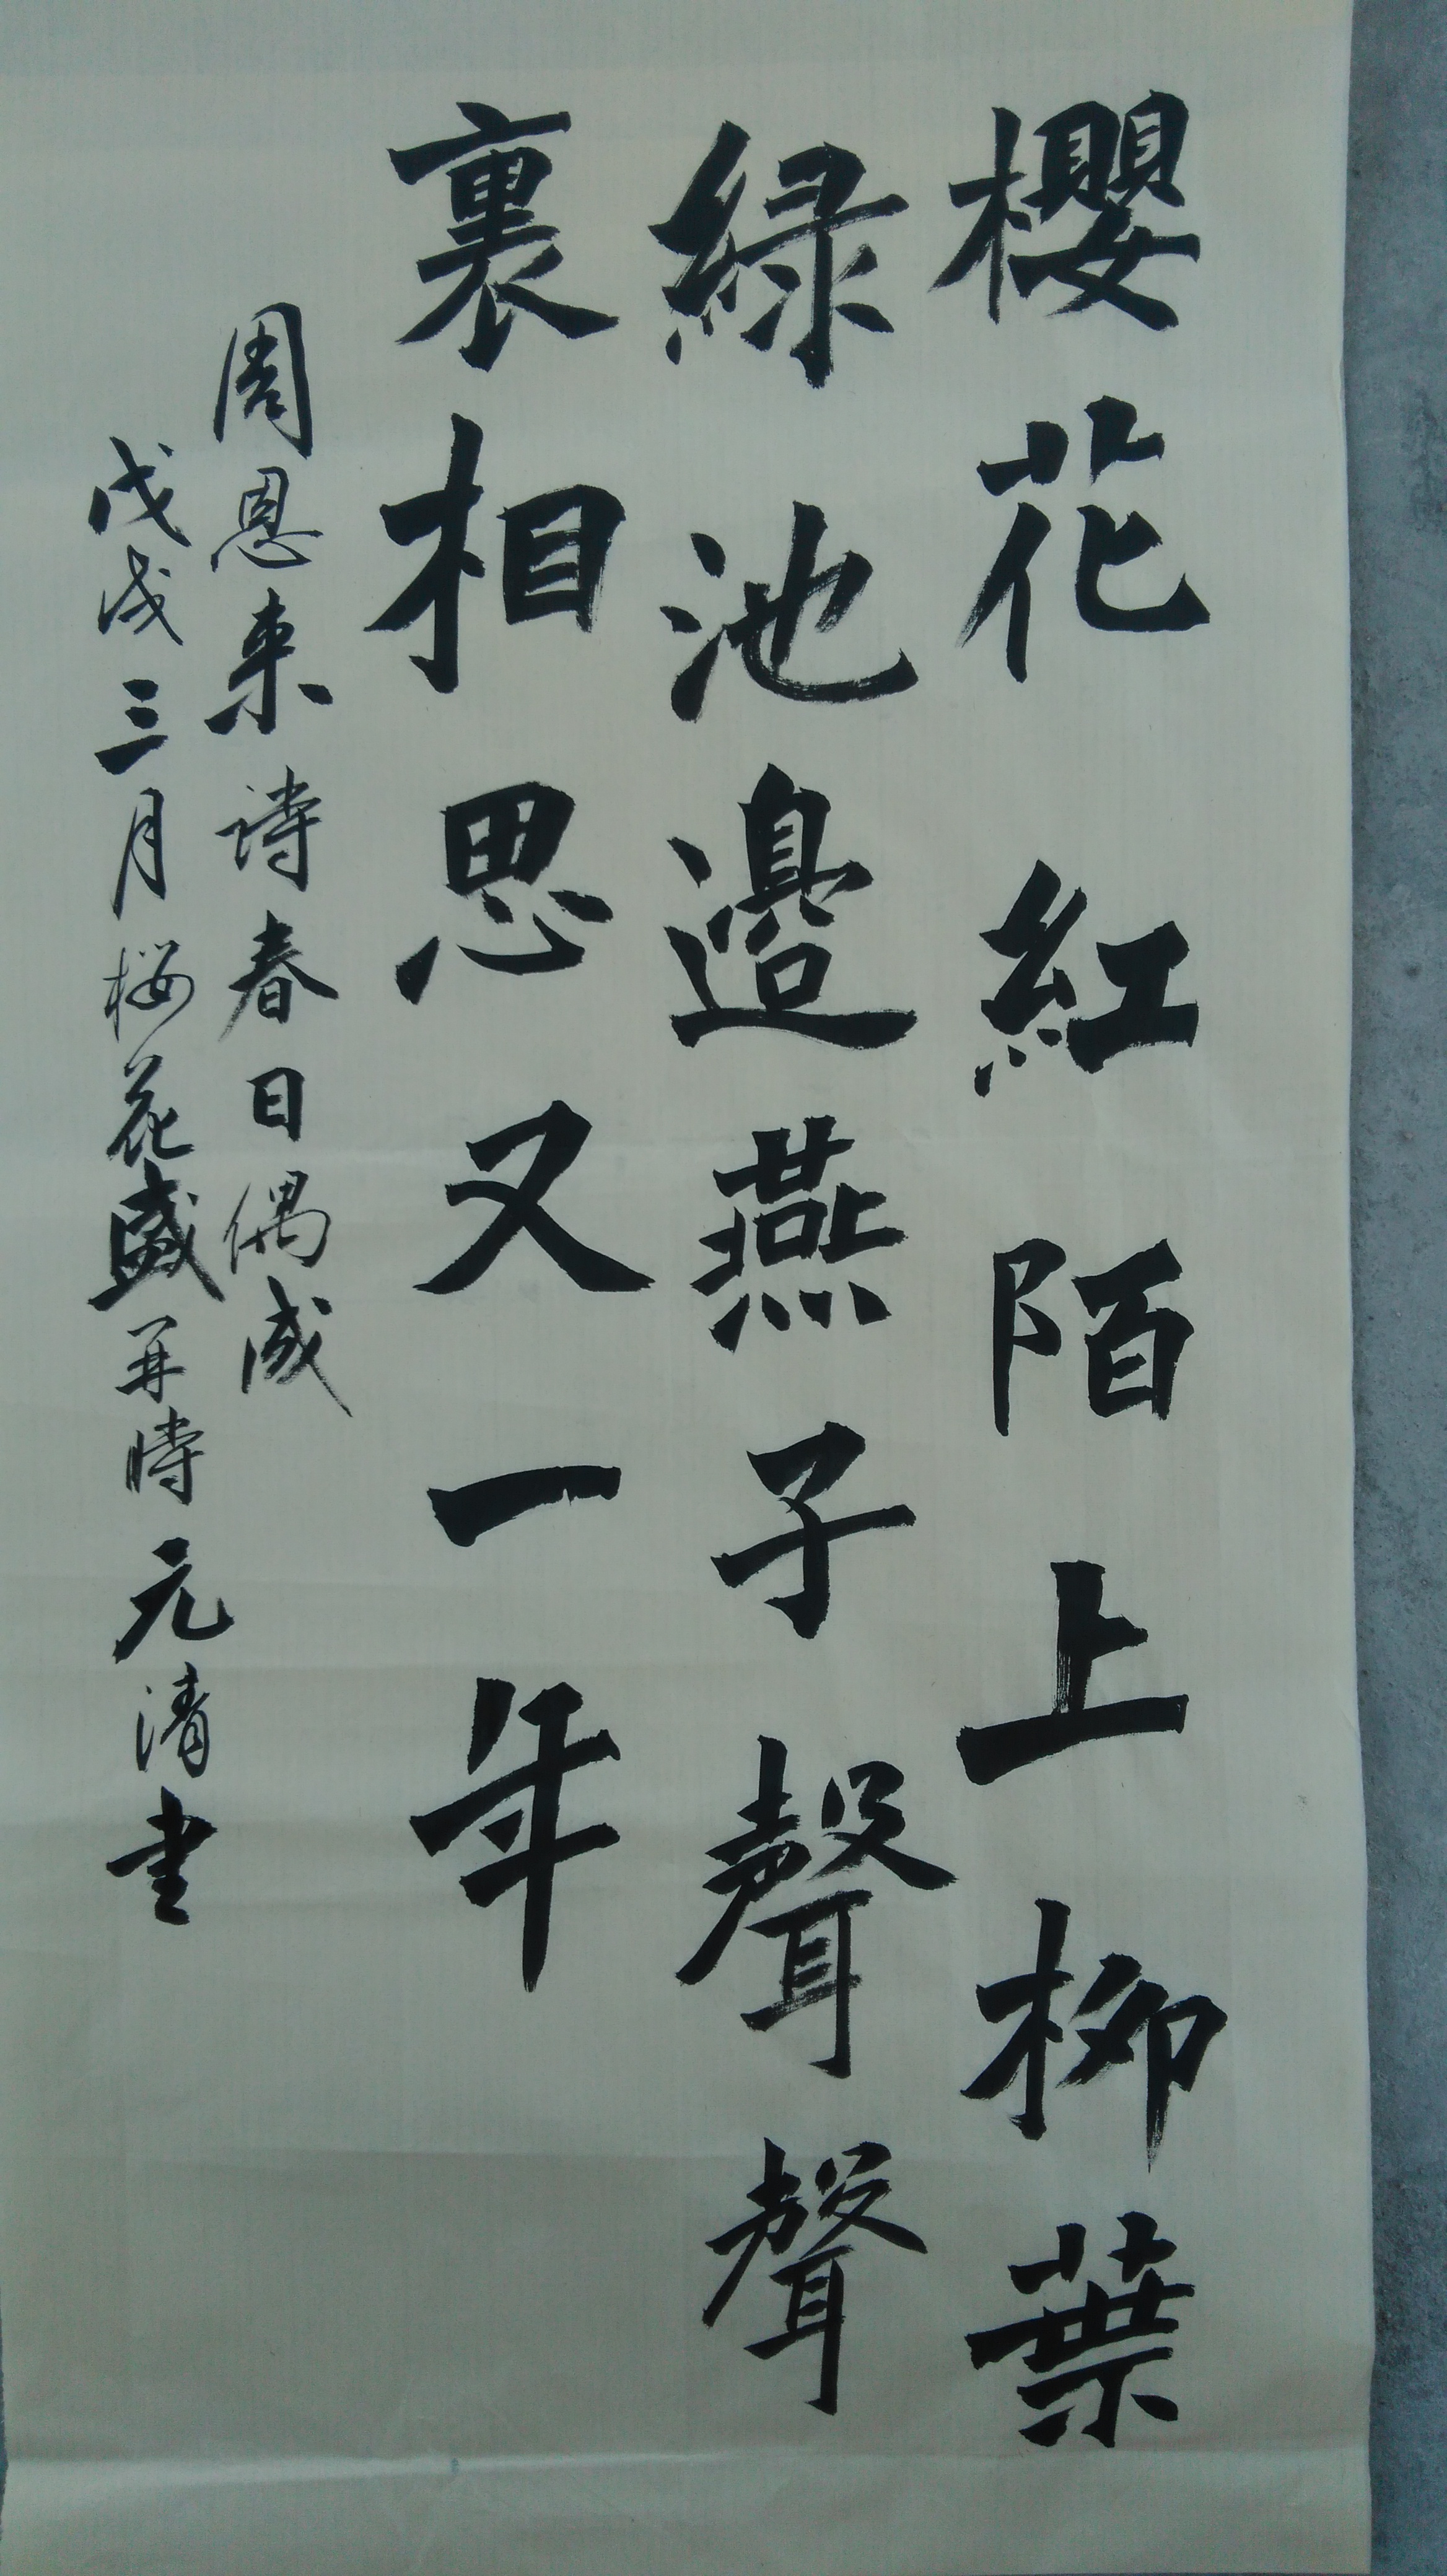 櫻花紅陌上柳葉
綠池邊燕子聲聲
裏相思又一年
周恩来詩春日偶成
戊戌三月樱花盛开時元清书